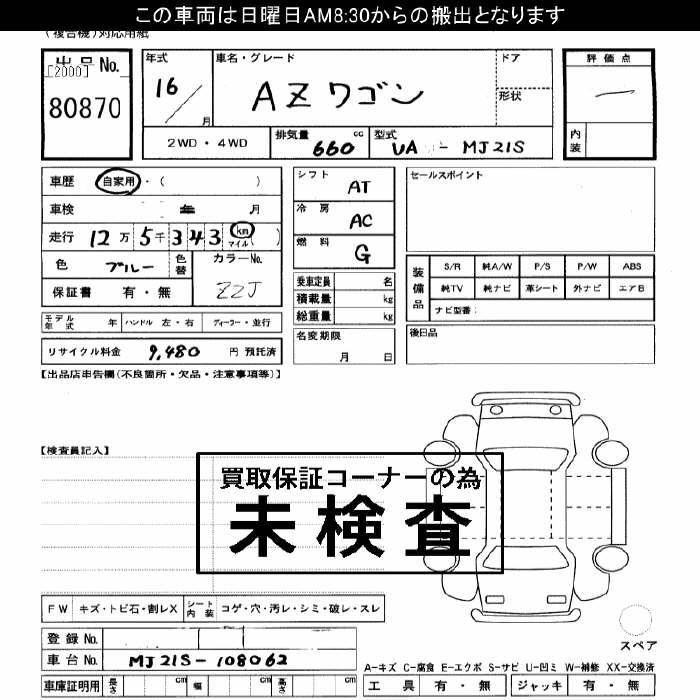 この車両は日曜日AM8:30からの搬出となります
(複合機)対応用紙
出品No.
[2000]
80870
年式
16/
月
車名・グレード
AZワゴン
ドア
形状
評価点
内装
2WD・4WD
排気量
660 cc
型式
UA - MJ21S
車歴 自家用・( )
車検 年 月
走行 12万5千343 km マイル ( )
色 ブルー
色替
カラーNo.
ZZJ
保証書 有・無
シフト AT
冷房 AC
燃料 G
乗車定員 名
積載量 kg
総重量 kg
名変期限
月 日
セールスポイント
装備品
S/R 純A/W P/S P/W ABS
純TV 純ナビ 革シート 外ナビ エアB
ナビ型番:
後日品
モデル年式 年 ハンドル 左・右 ディーラー・並行
リサイクル料金 9,480 円 預託済
【出品店申告欄(不良箇所・欠品・注意事項等)】
【検査員記入】
買取保証コーナーの為
未検査
FW キズ・トビ石・割レX シート内装 コゲ・穴・汚レ・シミ・破レ・スレ
登録No.
車台No. MJ21S-108062
車庫証明用 長さ cm 幅 cm 高さ cm
スペア
A-キズ C-腐食 E-エクボ S-サビ U-凹ミ W-補修 XX-交換済
工具 有・無 ジャッキ 有・無